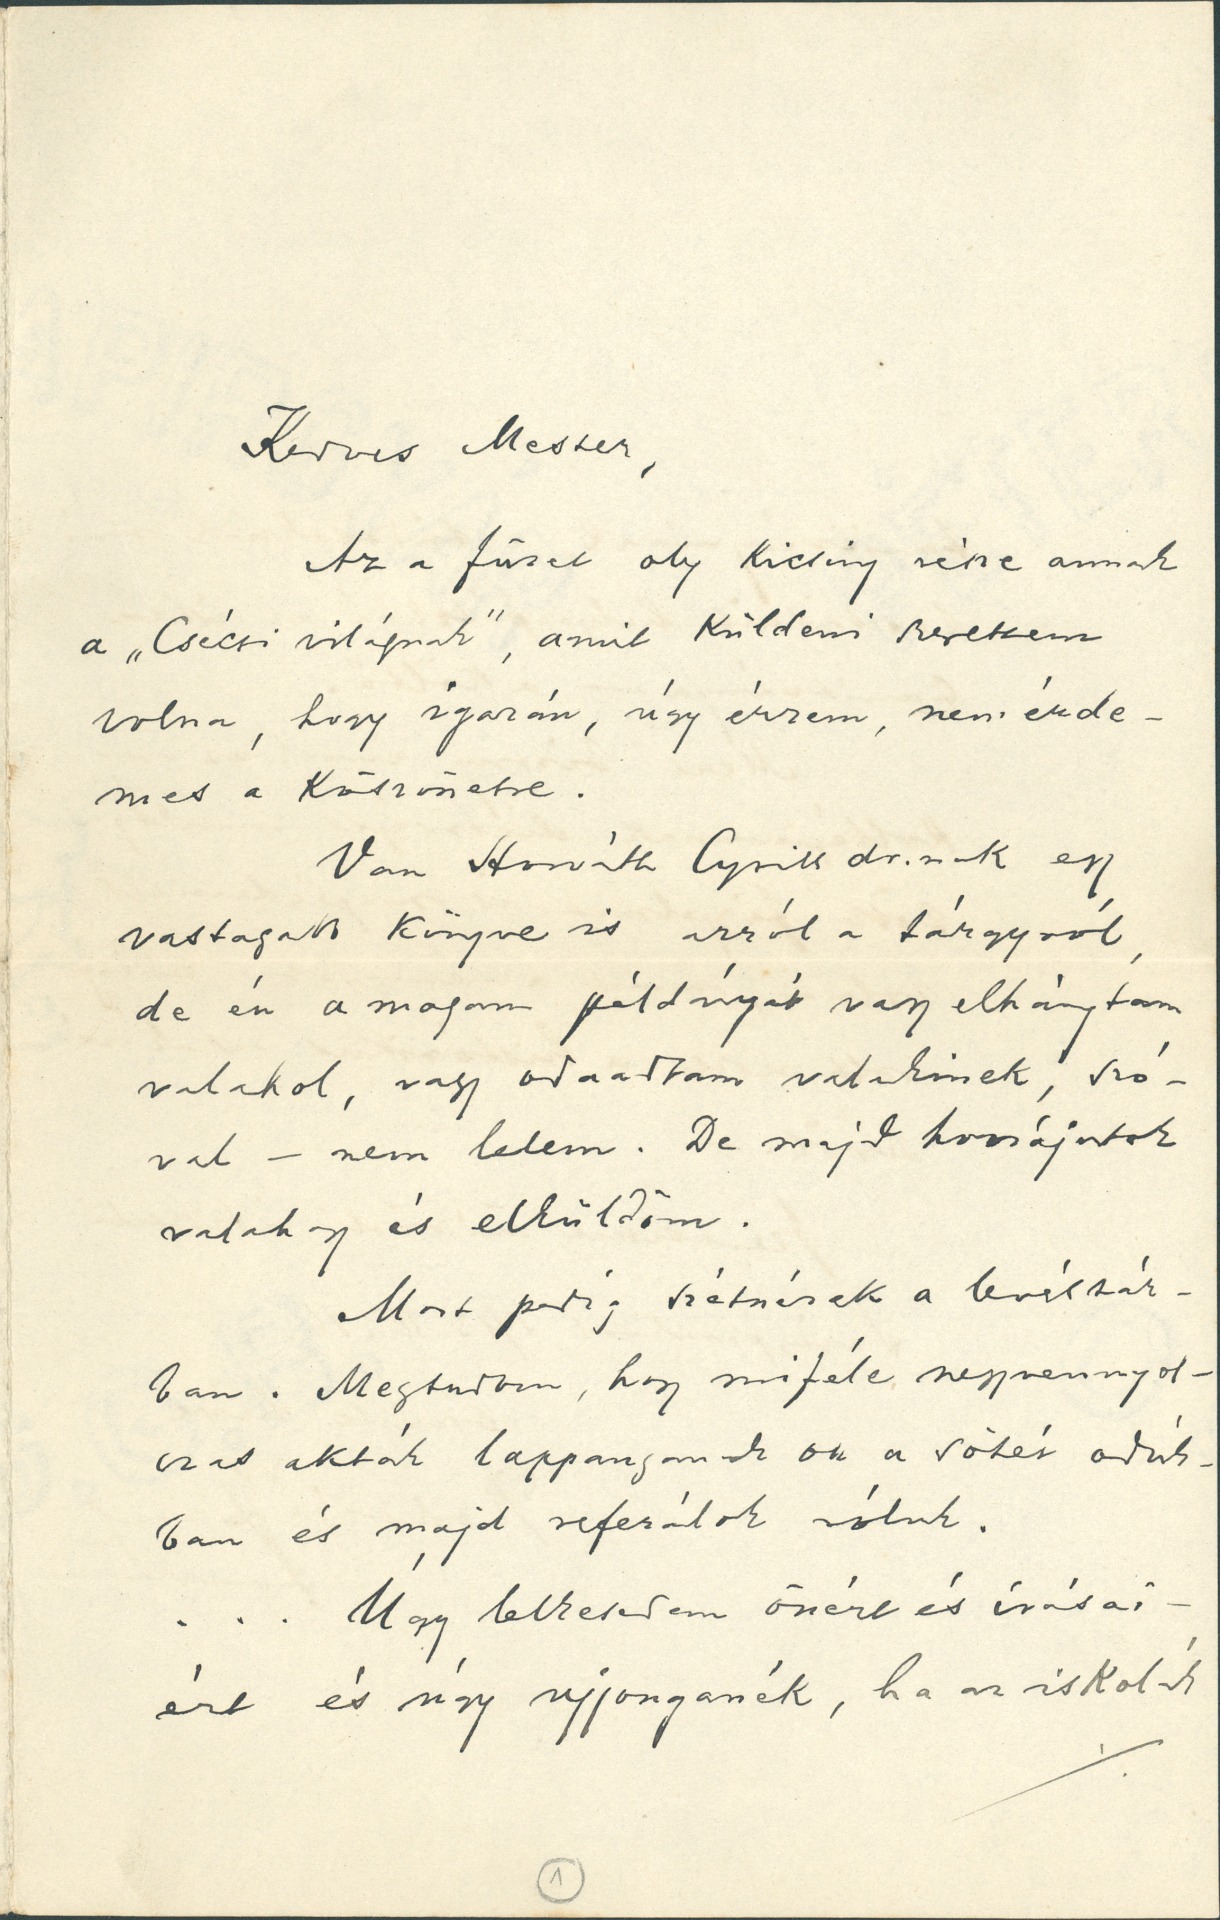 Kedves Mester,
Az a füzet oly kicsiny része annak
a „Csécsi világnak", amit küldeni szerettem
volna, hogy igazán, úgy érzem, nem érde-
mes a köszönetre.
Van Horváth Cyrill dr.nak egy
vastagabb könyve is arról a tárgyról,
de én a magam példányát vagy elhánytam
valahol, vagy odaadtam valakinek, szó-
val – nem lelem. De majd hozzájutok
valahogy és elküldöm.
Most pedig szétnézek a levéltár-
ban. Megtudom, hogy miféle negyvennyol-
czas akták lappanganak ott a sötét odúk-
ban és majd referálok róluk.
. . . Úgy lelkesedem önért és írásai-
ért és úgy ujjonganék, ha az iskolák
./.
1